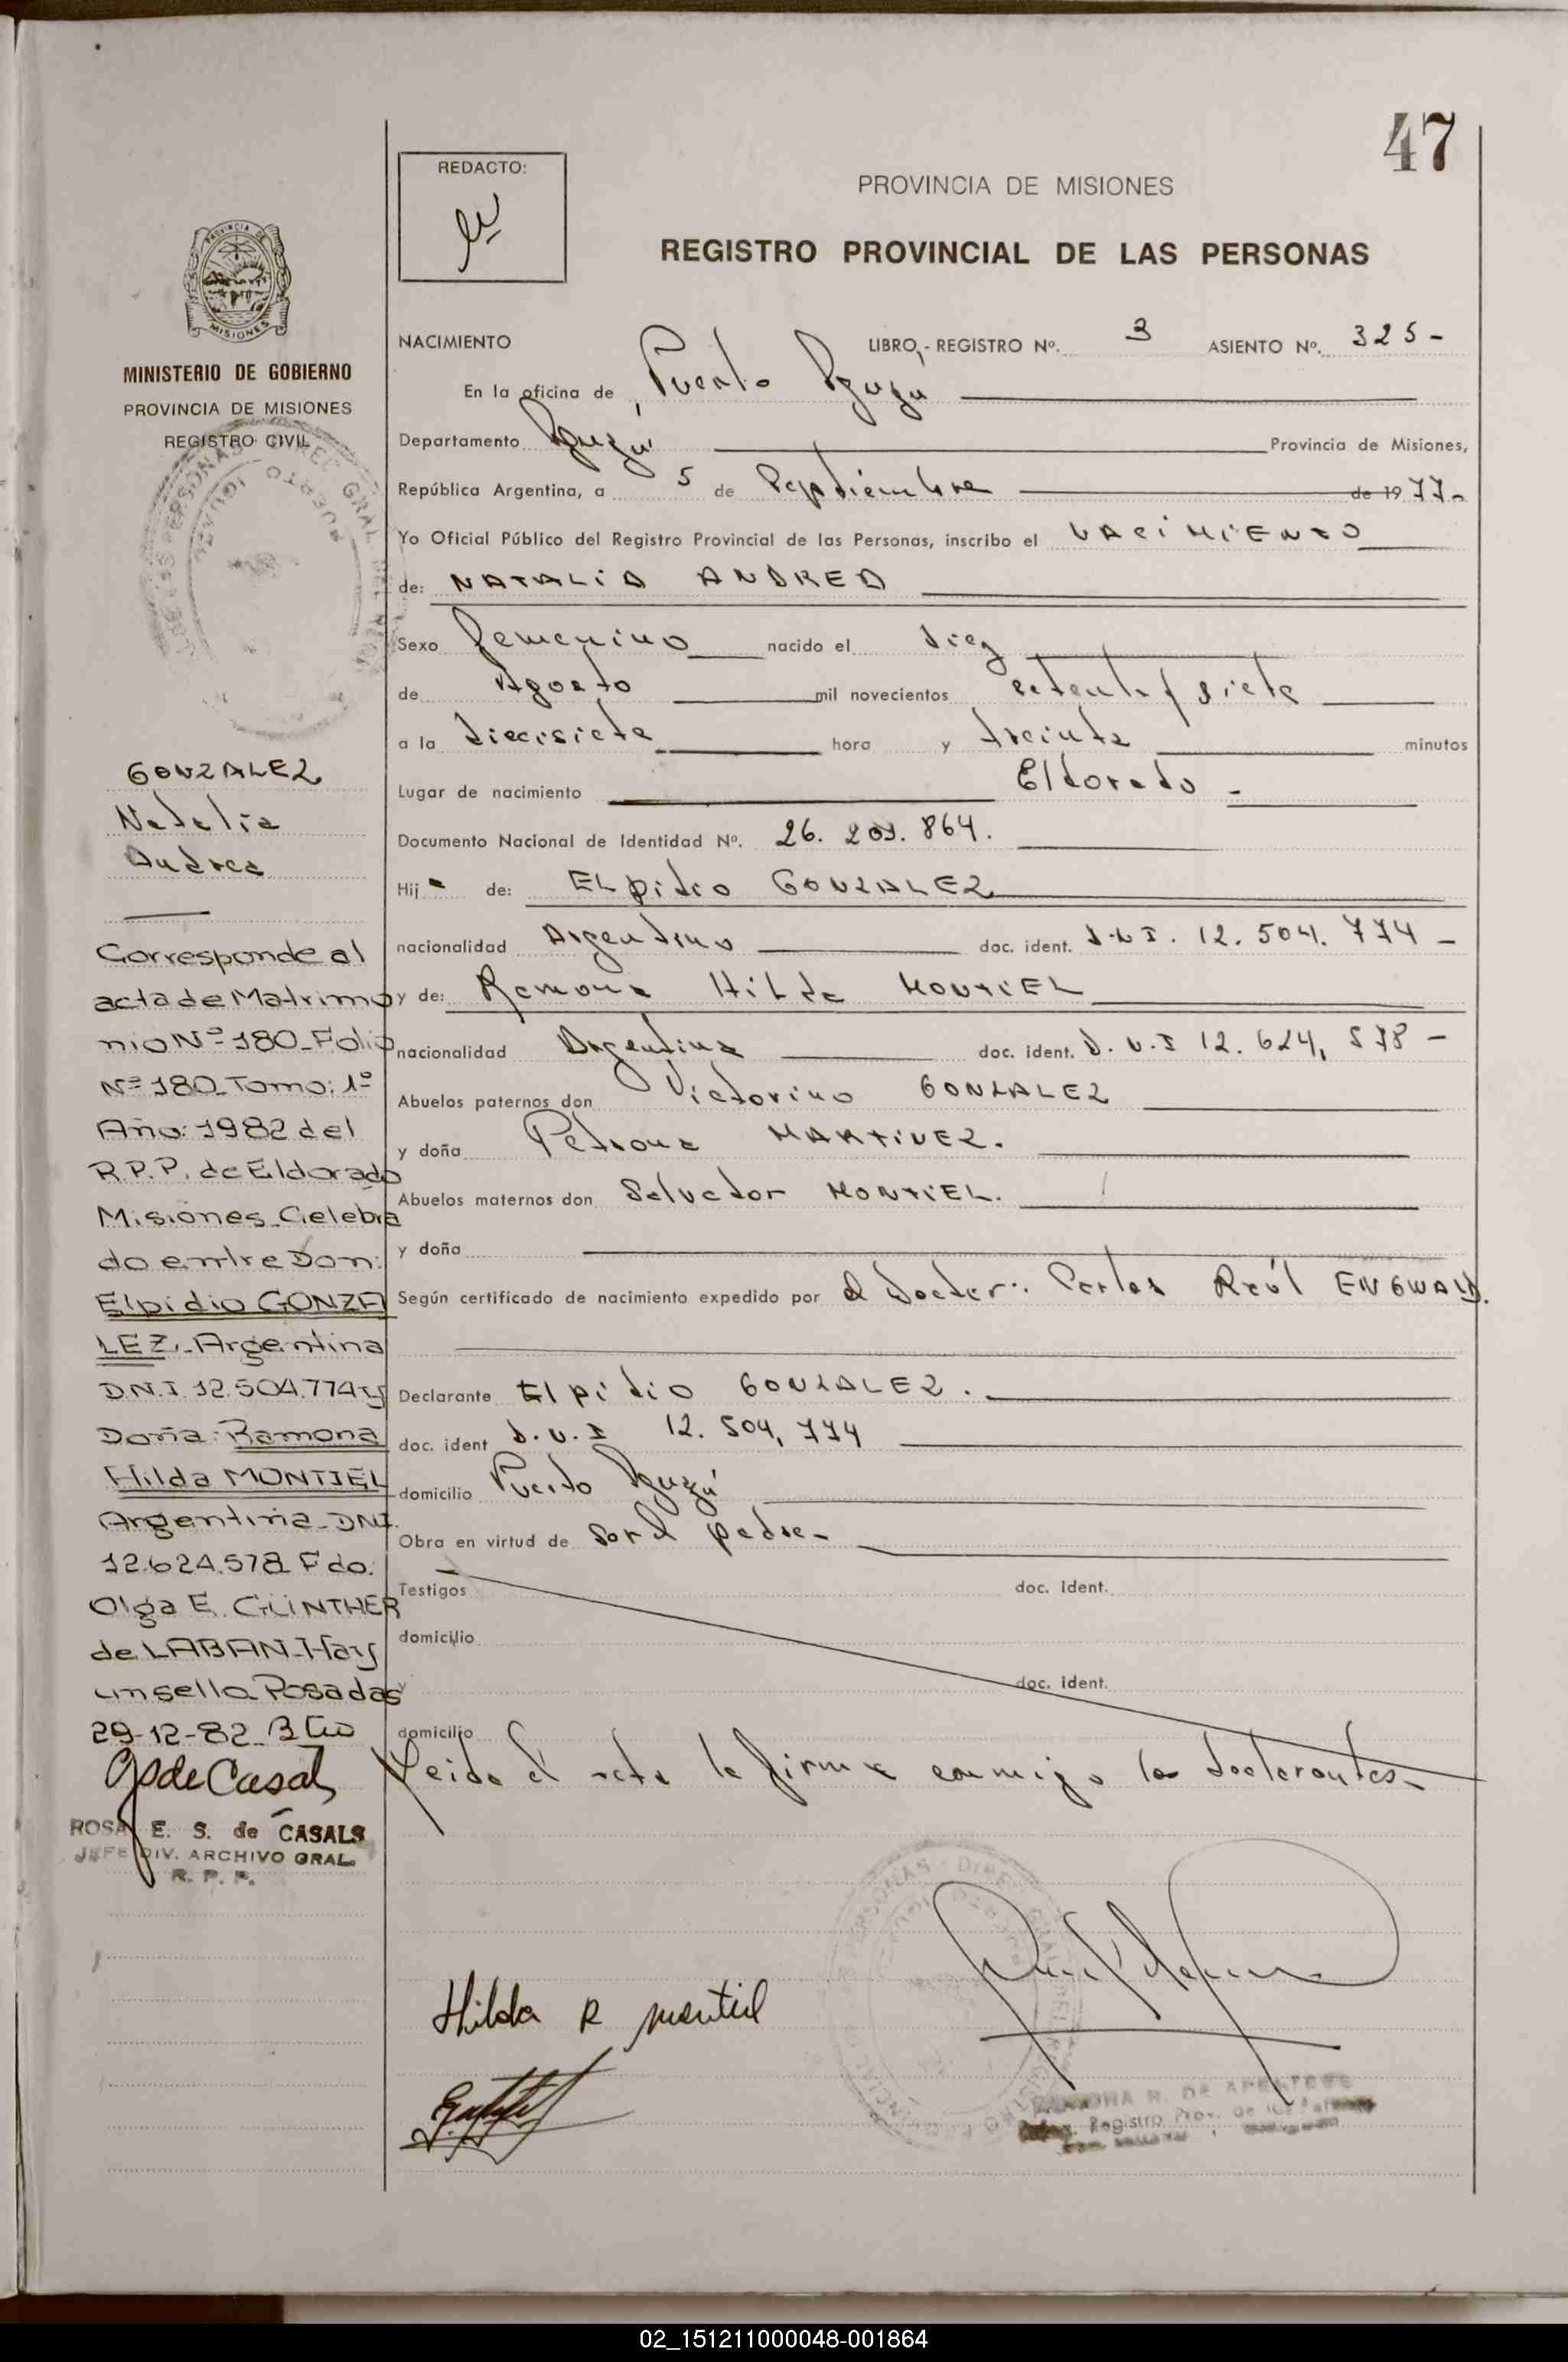 47
REDACTO:
PROVINCIA DE MISIONES
REGISTRO PROVINCIAL DE LAS PERSONAS
MISIONES
MINISTERIO DE GOBIERNO
PROVINCIA DE MISIONES
REGISTRO CIVIL
GONZALEZ
Natalia
Andrea
Corresponde al
acta de Matrimo
nio Nº 180 - Folio
Nº 180 - Tomo: 1º
Año: 1982 del
R.P.P. de Eldorado
Misiones - Celebra
do entre Don:
Elpidio GONZA
LEZ - Argentina
D.N.I. 12.504.774 y
Doña: Ramona
Hilda MONTIEL
Argentina - DNI.
12.624.578 Fdo:
Olga E. GÜNTHER
de LABAN - Hay
un sello Posadas
29-12-82
ROSA E. S. de CASALS
JEFE DIV. ARCHIVO GRAL.
R. P. P.
NACIMIENTO LIBRO, - REGISTRO Nº. 3 ASIENTO Nº. 325 -
En la oficina de Puerto Iguazú
Departamento Iguazú Provincia de Misiones,
República Argentina, a 5 de Septiembre de 19 77 -
Yo Oficial Público del Registro Provincial de las Personas, inscribo el NACIMIENTO
de: NATALIA ANDREA
Sexo Femenino nacido el diez
de Agosto mil novecientos setenta y siete
a la diecisiete hora y treinta minutos
Lugar de nacimiento Eldorado -
Documento Nacional de Identidad Nº. 26. 203. 864.
Hij a de: ELpidio GONZALEZ
nacionalidad Argentino doc. ident. D.N.I. 12. 504. 774 -
y de: Ramona Hilda MONTIEL
nacionalidad Argentina doc. ident. D. N. I 12. 624, 578 -
Abuelos paternos don Victorino GONZALEZ
y doña Petrona MARTINEZ.
Abuelos maternos don Salvador MONTIEL.
y doña
Según certificado de nacimiento expedido por el Doctor: Carlos Raúl ENGWALD.
Declarante Elpidio GONZALEZ.
doc. ident D. N. I 12. 504, 774
domicilio Puerto Iguazú
Obra en virtud de ser el padre -
Testigos doc. ident.
domicilio
y doc. ident.
domicilio
Leida el acta la firma conmigo los declarantes -
Hilda R Montiel
02_151211000048-001864